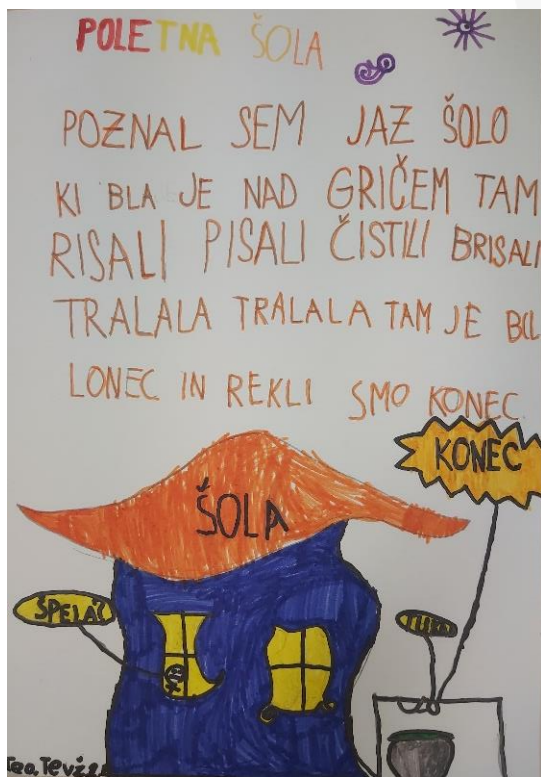 POLETNA ŠOLA
POZNAL SEM JAZ ŠOLO
KI BLA JE NAD GRIČEM TAM
RISALI PISALI ČISTILI BRISALI
TRALALA TRALALA TAM JE BIL
LONEC IN REKLI SMO KONEC
KONEC
ŠOLA
ŠPELA
Teo, Tevž